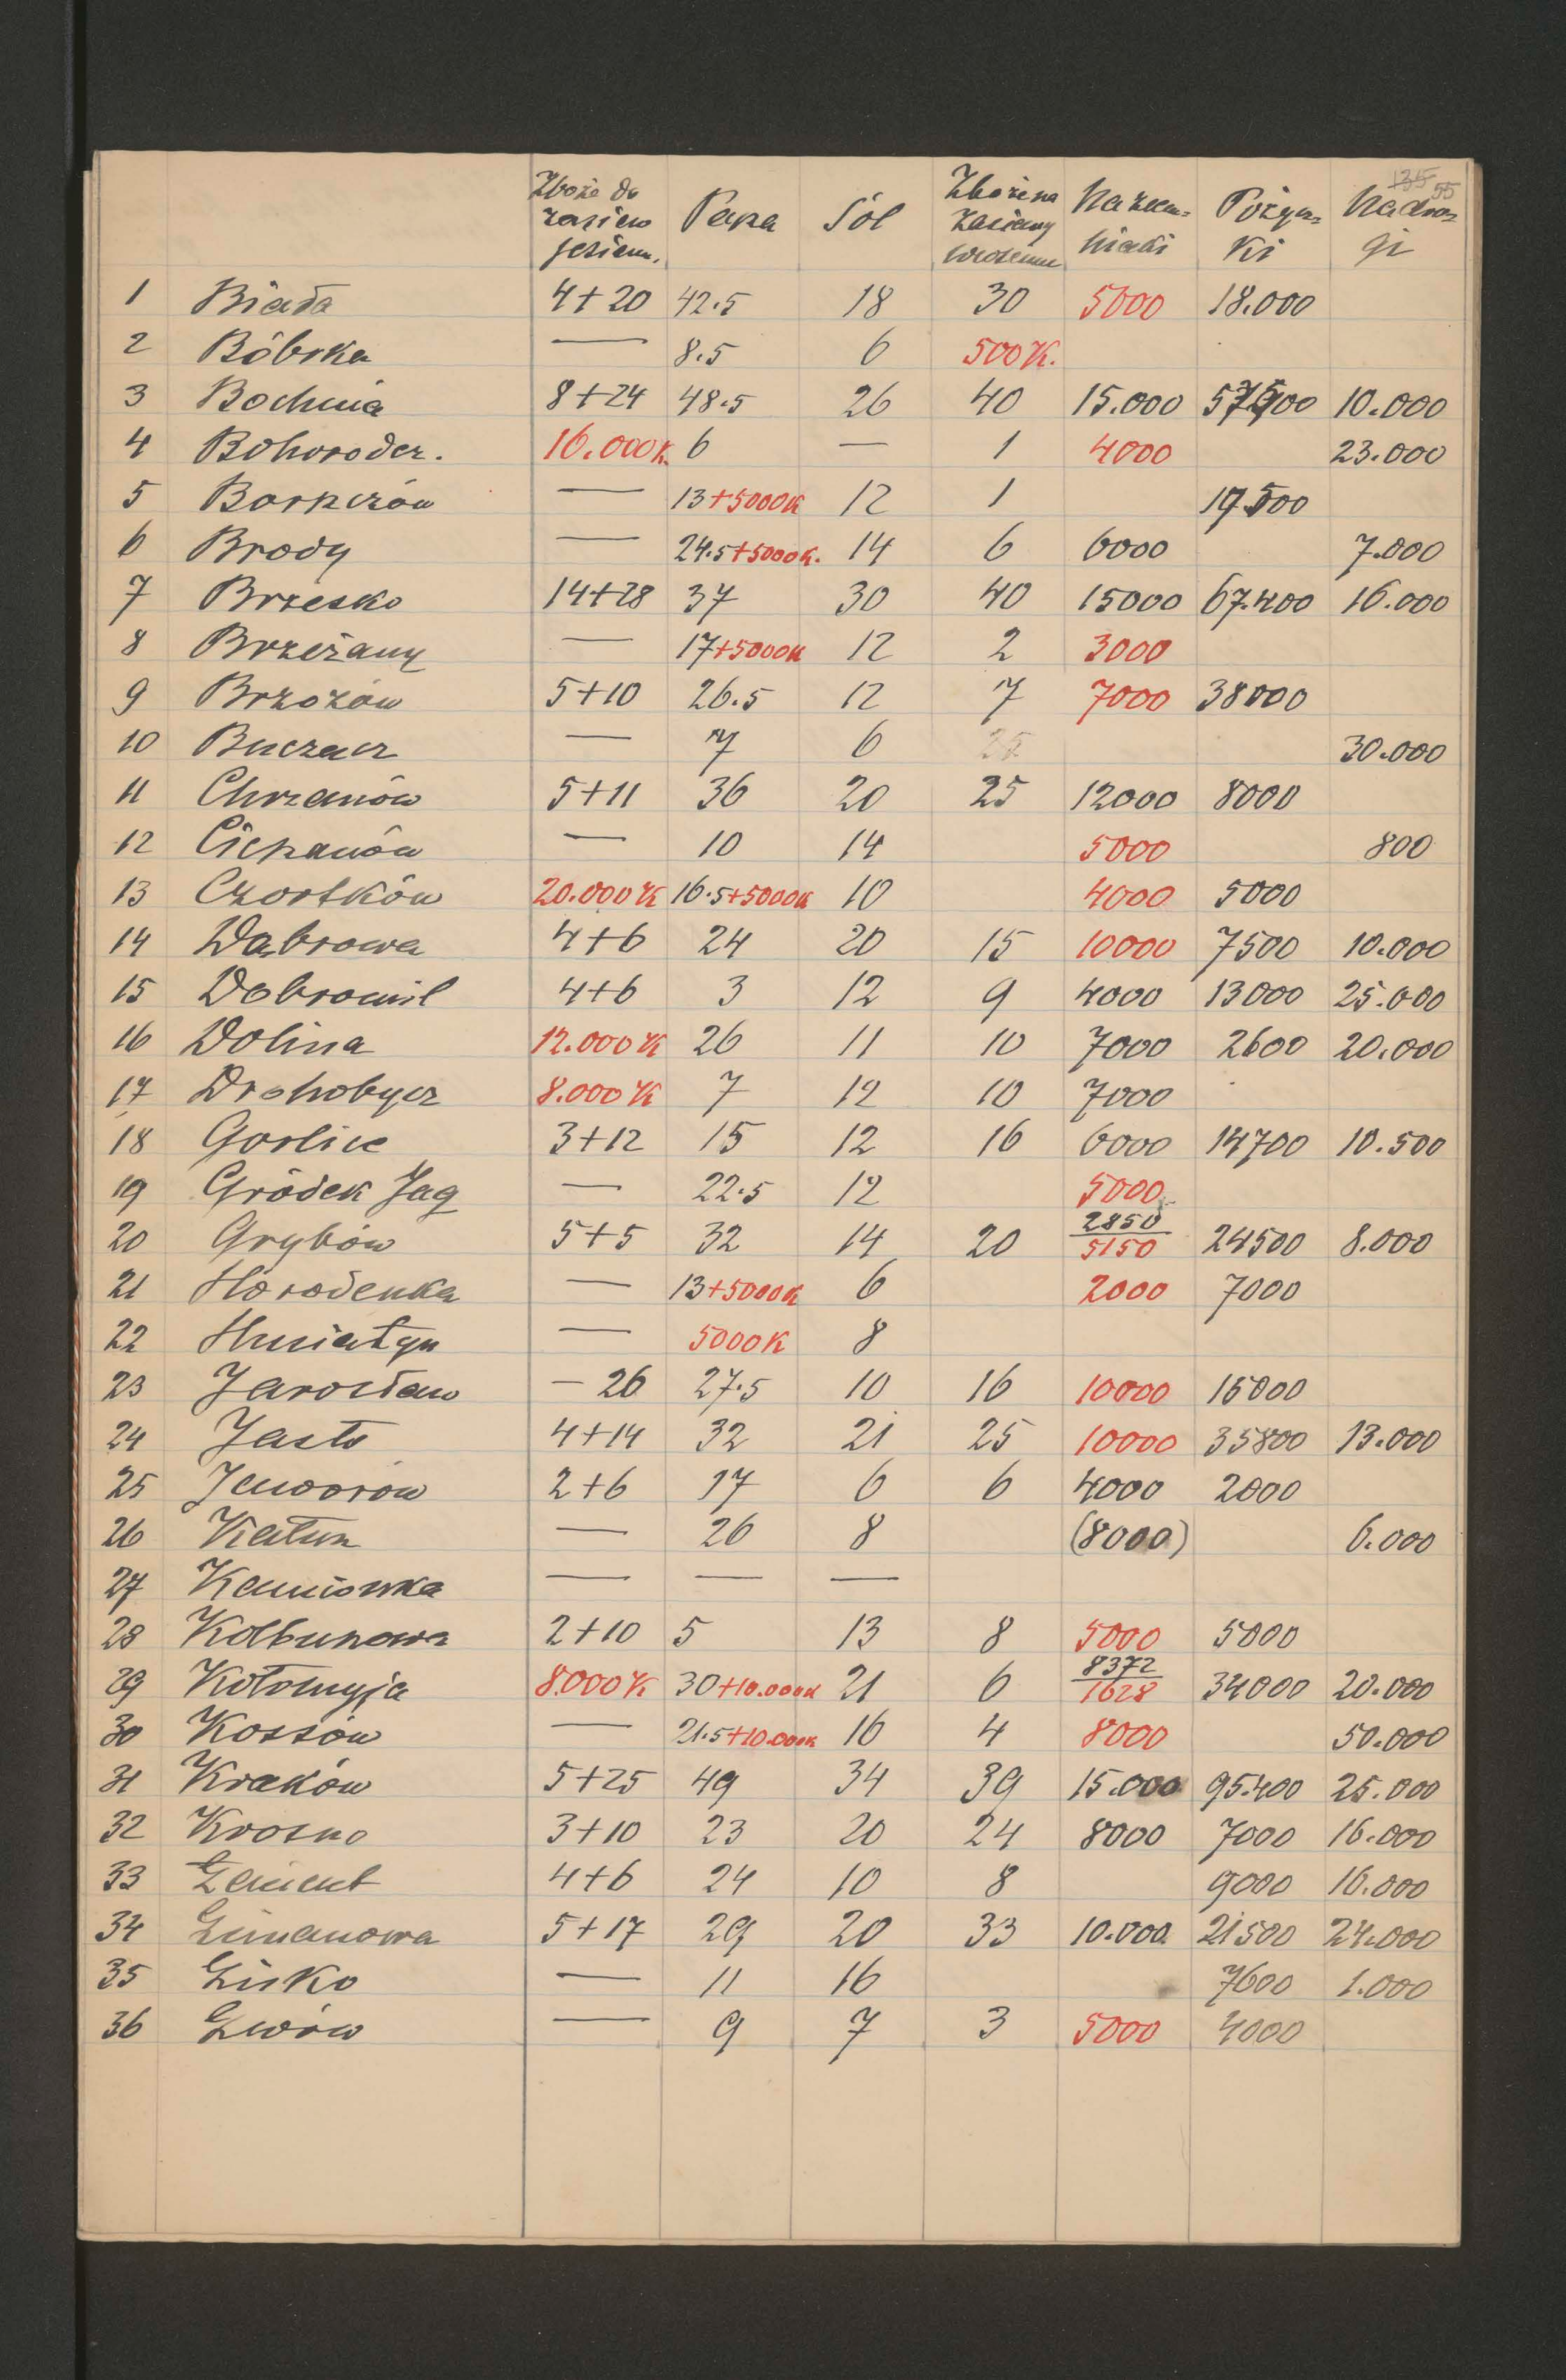 135 55
Zboże do zasiewu jesienn. Pasza Sól Zboże na zasiewy wiosenne Na ziem- niaki Pożycz- ki Na dro- gi
1 Biała 4+20 42.5 18 30 5000 18.000
2 Bóbrka — 8.5 6 500 K.
3 Bochnia 8+24 48.5 26 40 15.000 10.000
4 Bohorodcz. 16.000 K. 6 — 1 4000 23.000
5 Borszczów — 13+5000K 12 1 19.500
6 Brody — 24.5+5000K. 14 6 6000 7.000
7 Brzesko 14+28 37 30 40 15000 67.400 16.000
8 Brzeżany — 17+5000K 12 2 3000
9 Brzozów 5+10 26.5 12 7 7000 38000
10 Buczacz — 7 6 25 30.000
11 Chrzanów 5+11 36 20 25 12000 8000
12 Cieszanów — 10 14 5000 800
13 Czortków 20.000 K 16.5+5000K 10 4000 5000
14 Dąbrowa 4+6 24 20 15 10000 7500 10.000
15 Dobromil 4+6 3 12 9 4000 13000 25.000
16 Dolina 12.000 K 26 11 10 7000 2600 20.000
17 Drohobycz 8.000 K 7 12 10 7000
18 Gorlice 3+12 15 12 16 6000 14700 10.500
19 Gródek Jag — 22.5 12 5000
20 Grybów 5+5 32 14 20 2850 5150 24500 8.000
21 Horodenka — 13+5000K 6 2000 7000
22 Husiatyn — 5000K 8
23 Jarosław — 26 27.5 10 16 10000 15000
24 Jasło 4+14 32 21 25 10000 35800 13.000
25 Jaworów 2+6 17 6 6 4000 2000
26 Kałusz — 26 8 (8000) 6.000
27 Kamionka — — —
28 Kolbuszowa 2+10 5 13 8 5000 5000
29 Kołomyja 8.000 K 30+10.000K 21 6 8372 1628 34000 20.000
30 Kossów — 21.5+10.000K 16 4 8000 50.000
31 Kraków 5+25 49 34 39 15.000 95.400 25.000
32 Krosno 3+10 23 20 24 8000 7000 16.000
33 Łańcut 4+6 24 10 8 9000 16.000
34 Limanowa 5+17 29 20 33 10.000 21500 24.000
35 Lisko — 11 16 7600 1.000
36 Lwów — 9 7 3 5000 4000